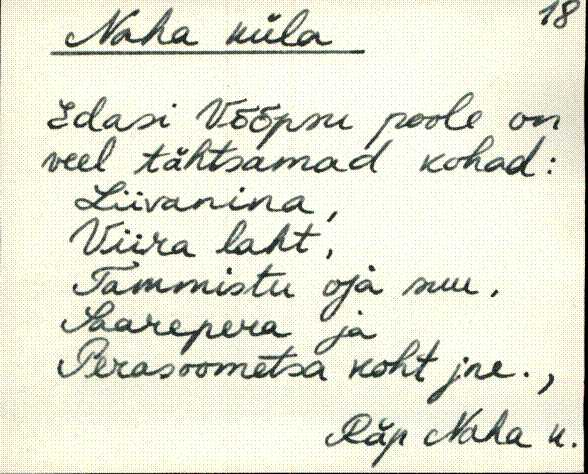 18
Naha küla
Edasi Võõpsu poole on
veel tähtsamad kohad:
Liivanina,
Viira laht,
Tammistu oja suu,
Saarepera ja
Perasoometsa koht jne.,
Räp Naha k.